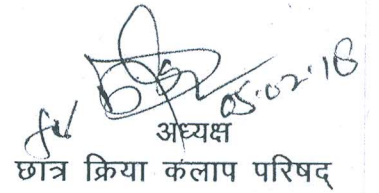 05.02.18
अध्यक्ष
छात्र क्रिया कलाप परिषद्